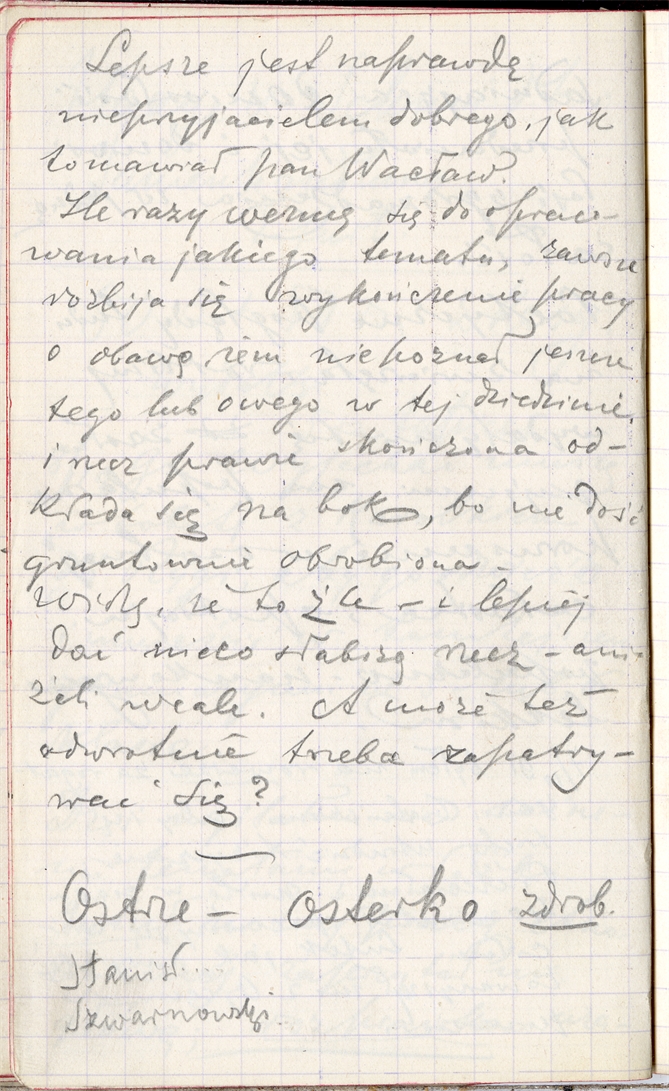 Lepsze jest naprawdę
nieprzyjacielem dobrego, jak
to mawiał pan Wacław.
Ile razy wezmę się do opraco-
wania jakiego tematu, zawsze
rozbija się wykończenie pracy
o obawę żem niepoznał jeszcze
tego lub owego w tej dziedzinie.
i rzecz prawie skończona od-
kłada się na bok, bo nie dość
gruntownie obrobiona –
Widzę, że to źle – i lepiej
dać nieco słabszą rzecz – ani-
żeli wcale. A może też
odwrotnie trzeba zapatry-
wać się?
Ostrze – osterko zdrob.
Stanisł....
Szwarnowski.